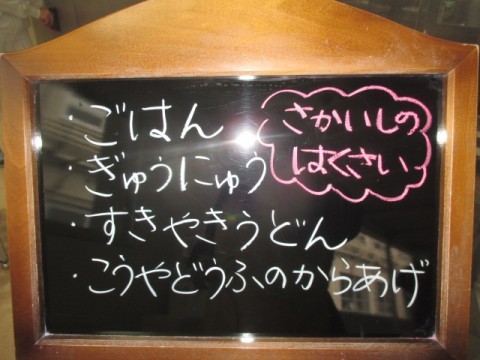 ・ごはん
・ぎゅうにゅう
・すきやきうどん
・こうやどうふのからあげ
さかいしの
はくさい